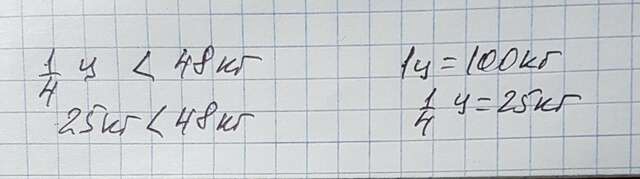 1/4 ц < 48кг
25кг < 48кг
1ц = 100кг
1/4 ц = 25кг